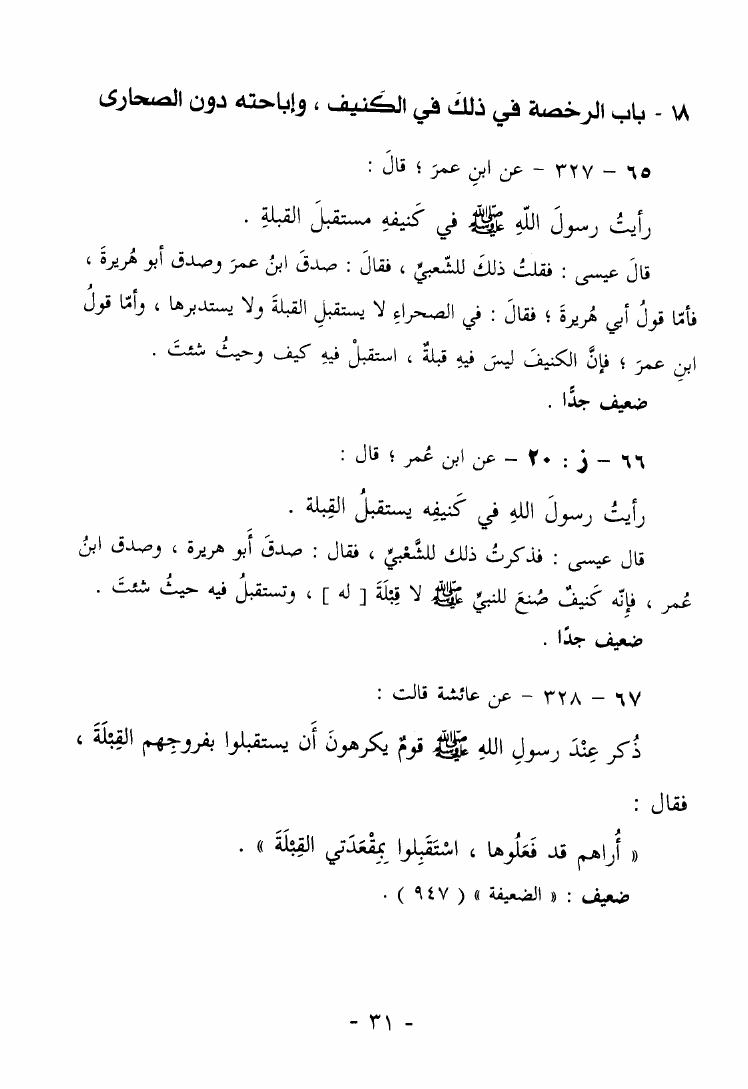 ١٨ - باب الرخصة في ذلكَ في الكَنيف ، وإباحته دون الصحارى
٦٥ – ٣٢٧ – عن ابنِ عمرَ ؛ قالَ :
رأيتُ رسولَ اللّهِ ﷺ في كَنيفهِ مستقبلَ القبلةِ .
قالَ عيسى : فقلتُ ذلكَ للشّعبيِّ ، فقالَ : صدقَ ابنُ عمرَ وصدق أبو هُريرةَ ،
فأمّا قولُ أبي هُريرةَ ؛ فقالَ : في الصحراءِ لا يستقبلِ القبلةَ ولا يستدبرها ، وأمّا قولُ
ابنِ عمرَ ؛ فإنَّ الكنيفَ ليسَ فيهِ قبلةٌ ، استقبلْ فيهِ كيف وحيثُ شئتَ .
ضعيف جدًّا .
٦٦ – ز : ٢٠ – عن ابن عُمر ؛ قال :
رأيتُ رسولَ اللهِ في كَنيفِه يستقبلُ القِبلة .
قال عيسى : فذكرتُ ذلك للشَّعْبيِّ ، فقال : صدقَ أَبو هريرة ، وصدق ابنُ
عُمر ، فإِنّه كَنيفٌ صُنعَ للنبيِّ ﷺ لا قِبْلَةَ [ له ] ، وتستقبلُ فيه حيثُ شئتَ .
ضعيف جدًا .
٦٧ – ٣٢٨ – عن عائشة قالت :
ذُكر عِنْدَ رسولِ اللهِ ﷺ قومٌ يكرهونَ أَن يستقبلوا بفروجِهم القِبْلَةَ ،
فقال :
« أُراهم قد فَعَلُوها ، اسْتَقَبِلوا بِمِقْعَدَتي القِبْلَةَ » .
ضعيف : « الضعيفة » ( ٩٤٧ ) .
- ٣١ -